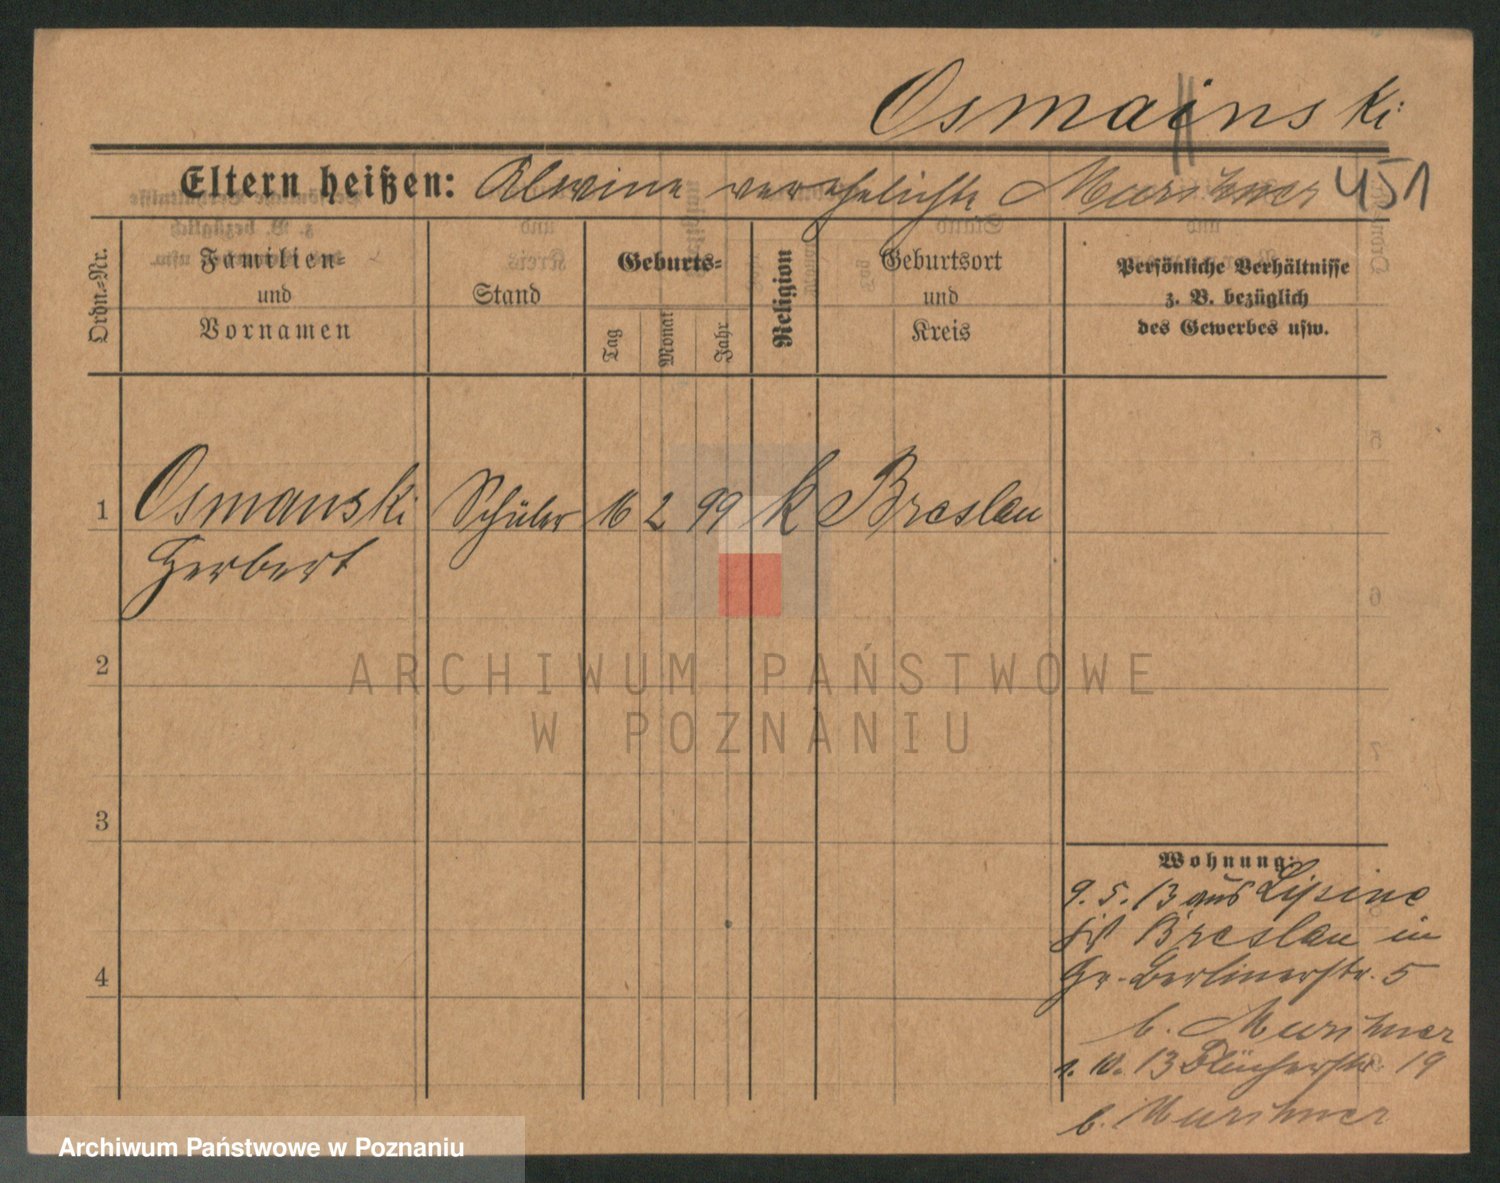 Osmainski
Eltern heißen: Alwine verehelichte 451
Ordn.-Nr.
Familien-
und
Vornamen
Stand
Geburts-
Tag
Monat
Jahr
Religion
Geburtsort
und
Kreis
Persönliche Verhältnisse
z. B. bezüglich
des Gewerbes usw.
1 Osmanski Schüler 16 2 99 k Breslau
Herbert
2
ARCHIWUM PAŃSTWOWE
W POZNANIU
3
4
Wohnung:
9.5.13 aus Lipine
Breslau in
Gr. Berlinerstr. 5
b.
1.10.13 Blücherstr. 19
b.
Archiwum Państwowe w Poznaniu